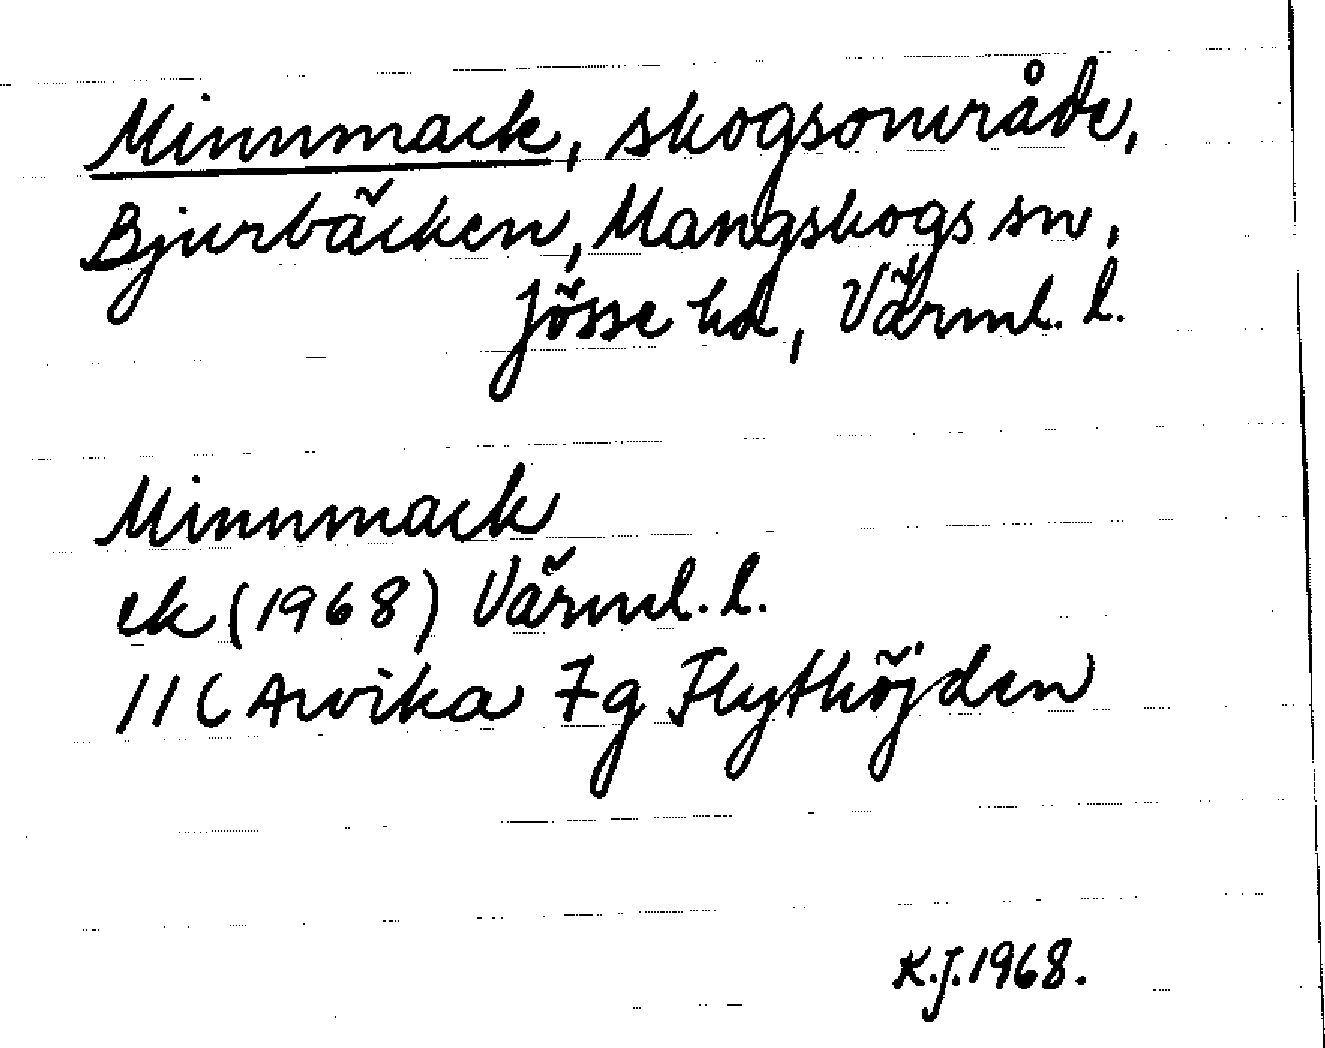 Minnmack, skogsområde,
Bjurbäcken, Mangskogs sn,
Jösse hd, Värml. l.
Minnmack
ek (1968) Värml. l.
11C Arvika 7g Flythöjden
K.J. 1968.